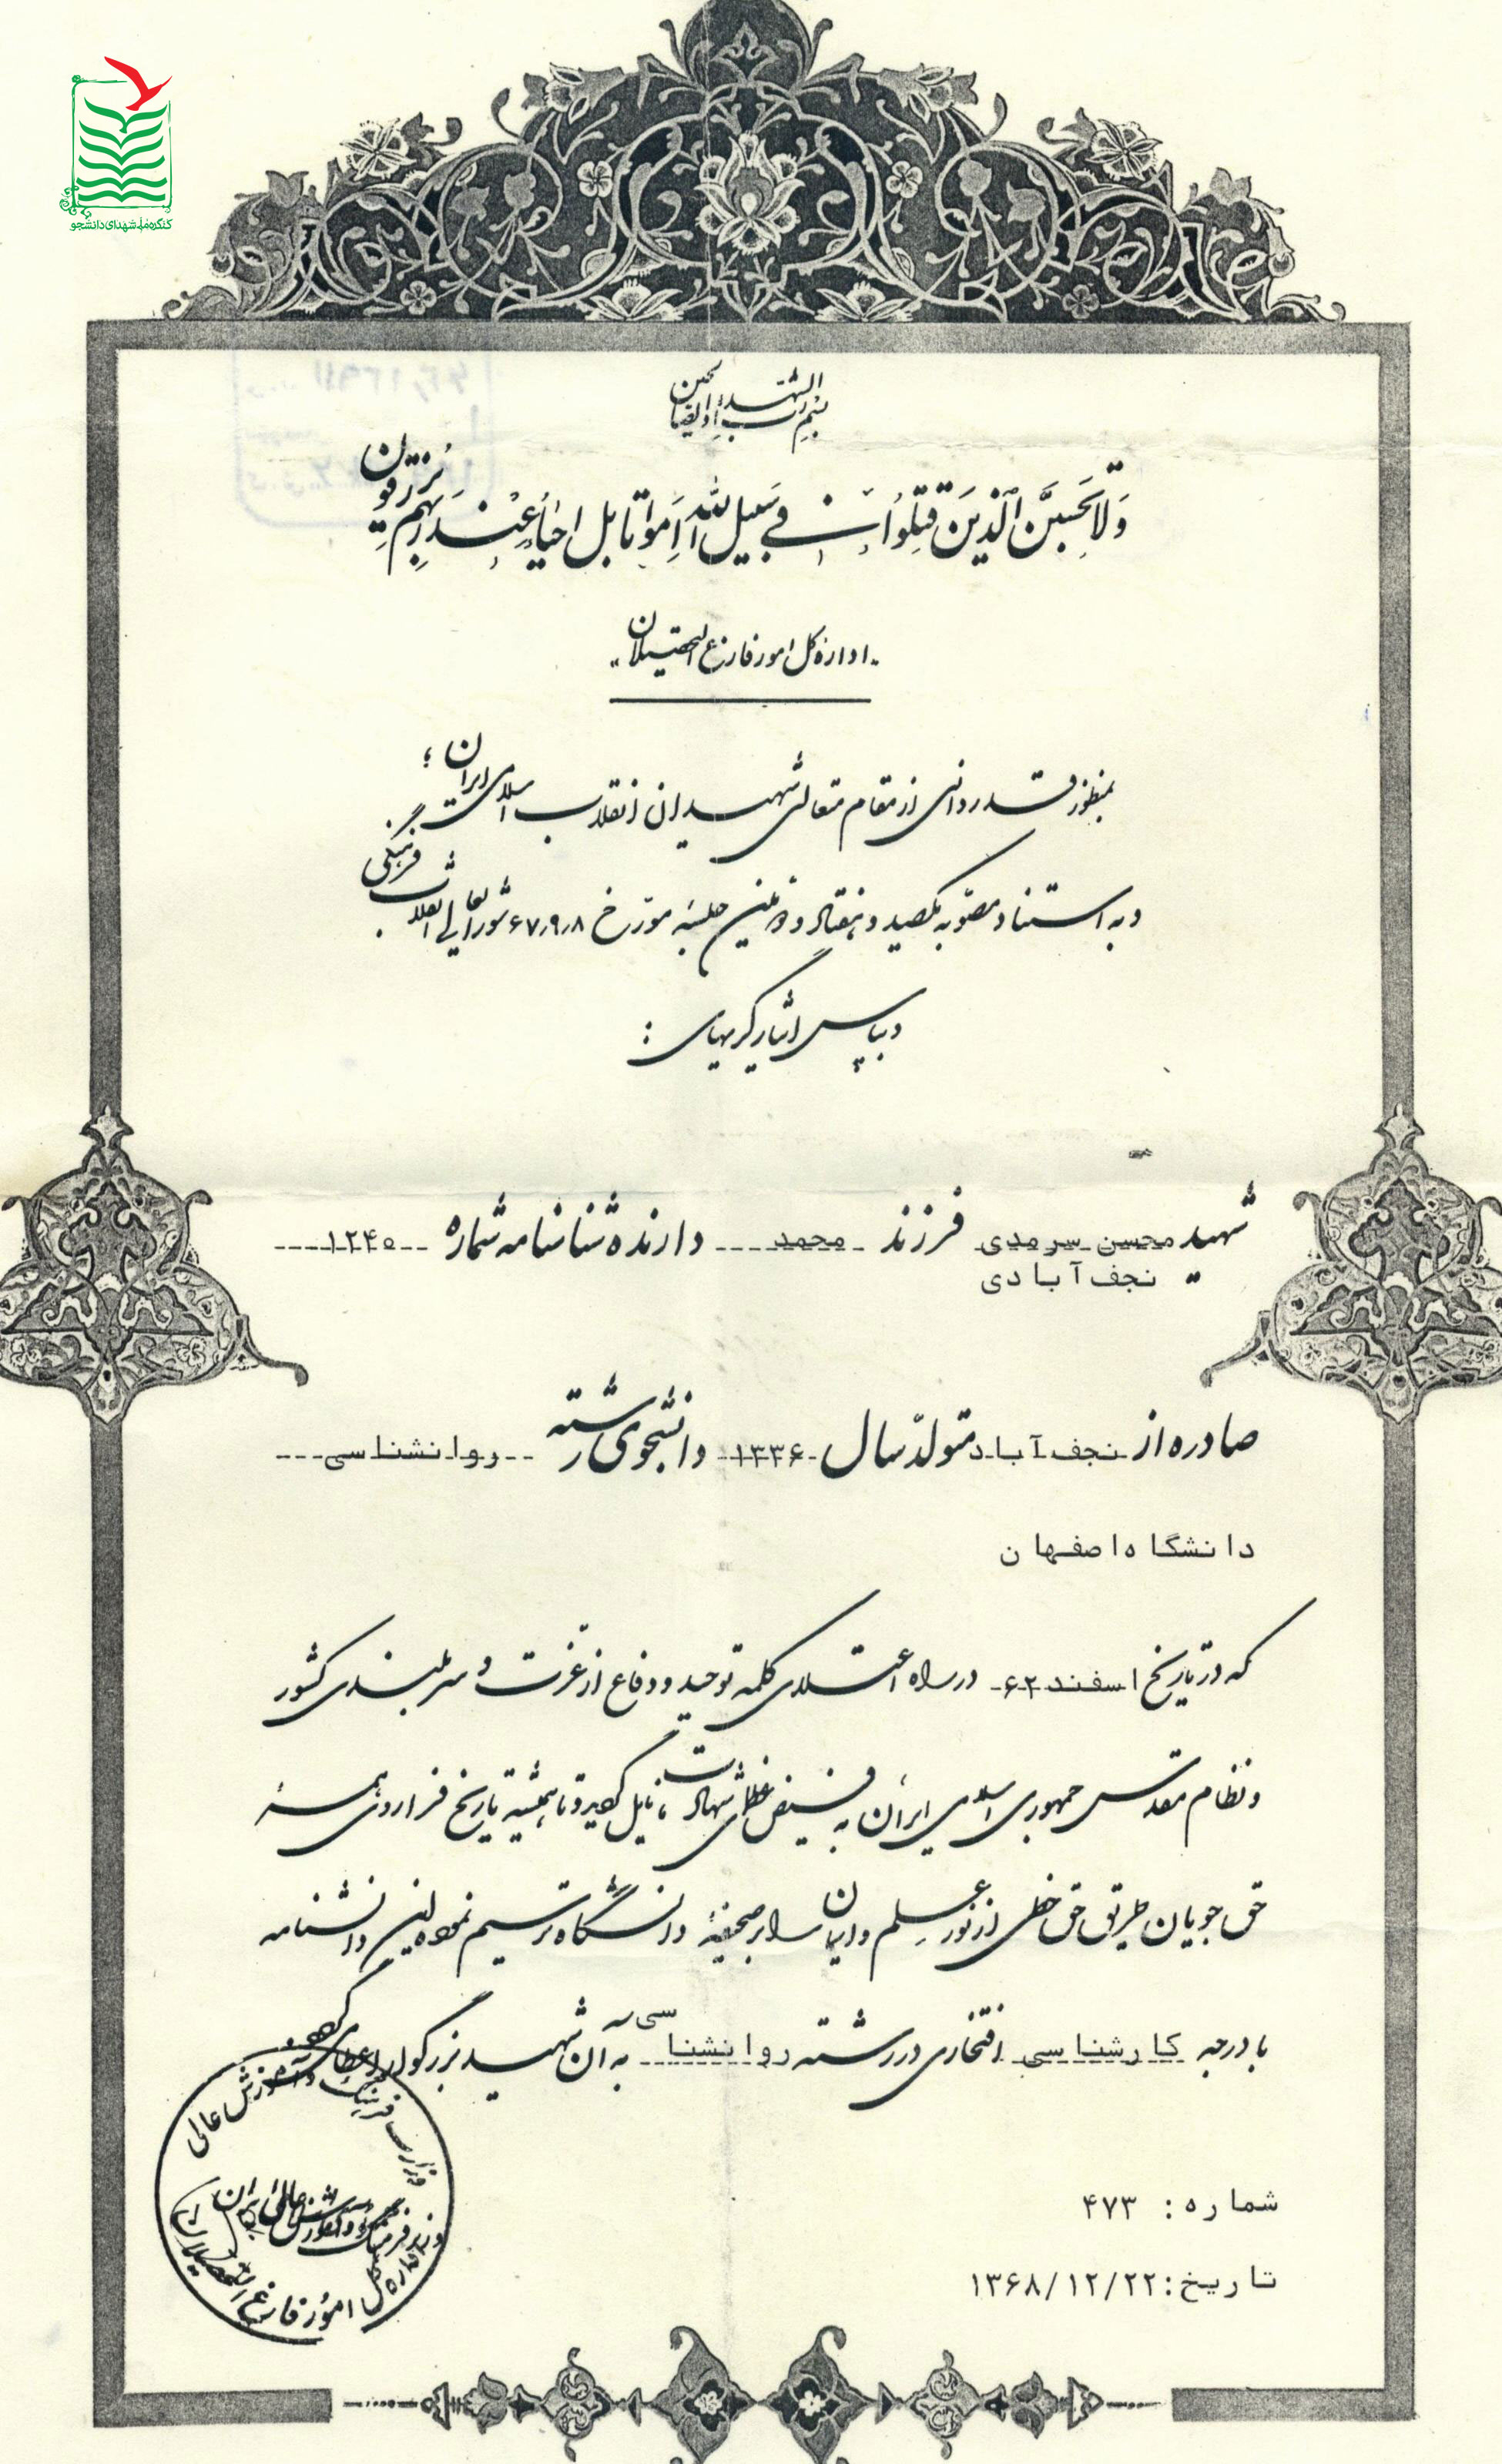 کنگره ملی شهدای دانشجو
بسم رب الشهداء و الصالحین
وَلا تَحسَبَنَّ الَّذینَ قُتِلُوا فی سَبیلِ اللهِ اَمواتا بَل اَحیاءٌ عِندَ رَبِّهِم یُرزَقون
اداره کل امور فارغ التحصیلان
بمنظور قدردانی از مقام متعالی شهیدان انقلاب اسلامی ایران ؛
و به استناد مصوبه یکصد و هفتاد و دومین جلسه مورّخ ۶۷٫۹٫۸ شورایعالی انقلاب فرهنگی
و بپاس ایثارگریهای :
شهید محسن سرمدی فرزند محمد دارنده شناسنامه شماره ۱۲۴۰
نجف آبادی
صادره از نجف آباد متولّد سال ۱۳۳۶ دانشجوی رشته روانشناسی
دانشگاه اصفهان
که در تاریخ اسفند ۶۲ در راه اعتلای کلمه توحید و دفاع از عزّت و سربلندی کشور
و نظام مقدس جمهوری اسلامی ایران به فیض عظمای شهادت نایل گردید و تا همیشه تاریخ فراروی همه
حق جویان طریق حق خطی از نور علم و ایمان را بر صحیفهٔ دانشگاه ترسیم نمود این دانشنامه
با درجه کارشناسی افتخاری در رشته روانشناسی به آن شهید بزرگوار اعطا می گردد.
وزارت فرهنگ و آموزش عالی
وزیر فرهنگ و آموزش عالی
اداره کل امور فارغ التحصیلان
شماره : ۴۷۳
تاریخ : ۱۳۶۸/۱۲/۲۲